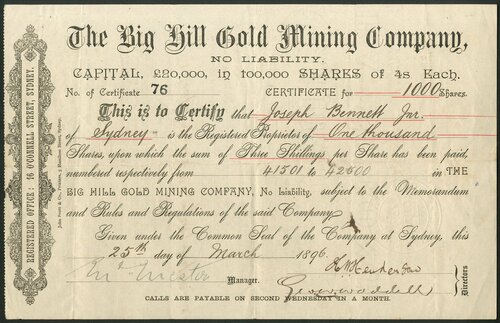 The Big Hill Gold Mining Company,
NO LIABILITY.
CAPITAL, £20,000, in 100,000 SHARES OF 4s Each.
No. of Certificate 76 CERTIFICATE for 1000 Shares.
This is to Certify that Joseph Bennett Jnr.
of Sydney is the Registered Proprietor of One thousand
Shares, upon which the sum of Three Shillings per Share has been paid,
numbered respectively from 41501 to 42500 in THE
BIG HILL GOLD MINING COMPANY, No Liability, subject to the Memorandum
and Rules and Regulations of the said Company
Given under the Common Seal of the Company at Sydney, this
25th day of March 1896.
Manager.
Directors
CALLS ARE PAYABLE ON SECOND WEDNESDAY IN A MONTH.
REGISTERED OFFICE: 16 O'CONNELL STREET, SYDNEY.